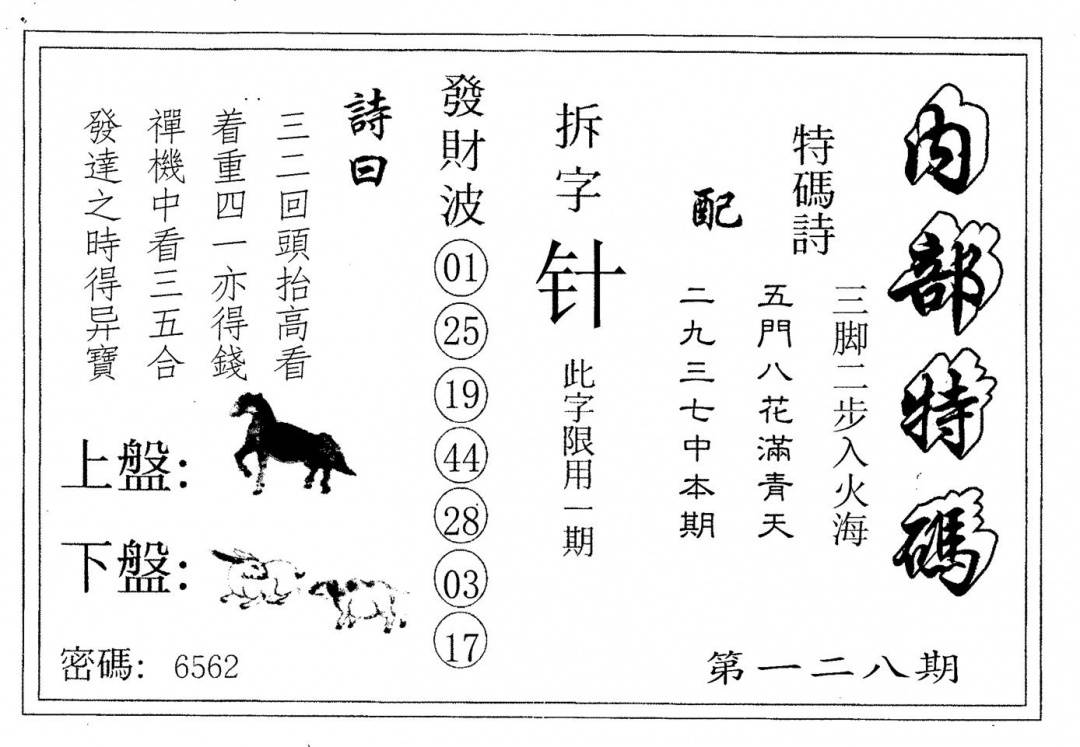 内部特碼
特碼詩
三脚二步入火海
五門八花滿青天
配
二九三七中本期
第一二八期
拆字
针
此字限用一期
發財波
01
25
19
44
28
03
17
詩曰
三二回頭抬高看
着重四一亦得錢
禪機中看三五合
發達之時得异寶
上盤：
下盤：
密碼：6562